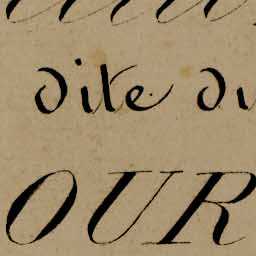 dite du
OUR